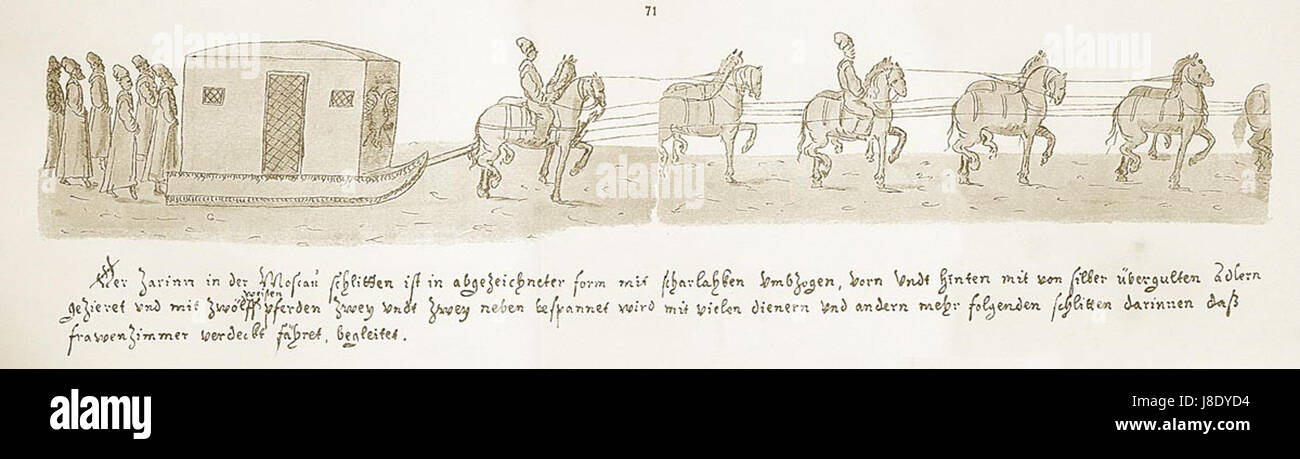 71
Der Zarinn in der Moscau schlitten ist in abgezeichneter form mit scharlahken umbzogen, vorn undt hinten mit von silber übergulten Adlern
weißen
gezieret und mit zwölff pferden zwey undt zwey neben bespannet wird mit vielen dienern und andern mehr folgenden schlitten darinnen daß
frawenzimmer verdeckt fähret, begleitet.
alamy
Image ID: J8DYD4
www.alamy.com